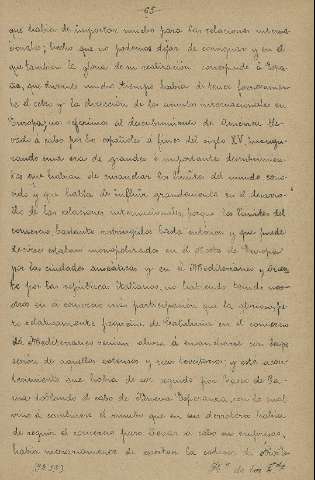 - 65 -
que habia de importar mucho para las relaciones interna-
cionales; hecho que no podemos dejar de consignar y en el
que tambien la gloria de su realización corresponde á Espa-
ña, que durante mucho tiempo habia de tener
el cetro y la dirección de los asuntos internacionales en
Europa; nos referimos al descubrimiento de America lle-
vado á cabo por los españoles á fines del siglo XV, inaugu-
rando una era de grandes é importantes descubrimien-
tos que habian de ensanchar los límites del mundo cono-
cido y que habia de influir grandemente en el desarro-
llo de las relaciones internacionales, porque los límites del
comercio, bastante restringidos hasta entonces y que puede
decirse estaban monopolizados en el Norte de Europa
por las ciudades anseáticas y en el Mediterraneo y Orien-
te por las republicas Italianas, no habiendo tenido nos-
otros en el comercio mas participación que la
relativamente pequeña de Cataluña en el comercio
del Mediterraneo venian ahora á ensancharse con la po-
sesión de aquellos extensos y ricos territorios; y este acon-
tecimiento que habia de ser seguido por Vasco de Ga-
ma doblando el cabo de Buena Esperanza, con lo cual
vino á cambiarse el rumbo que en sus derroteros habia
de seguir el comercio para llevar á cabo sus empresas,
habia necesariamente de excitar la codicia de
de los